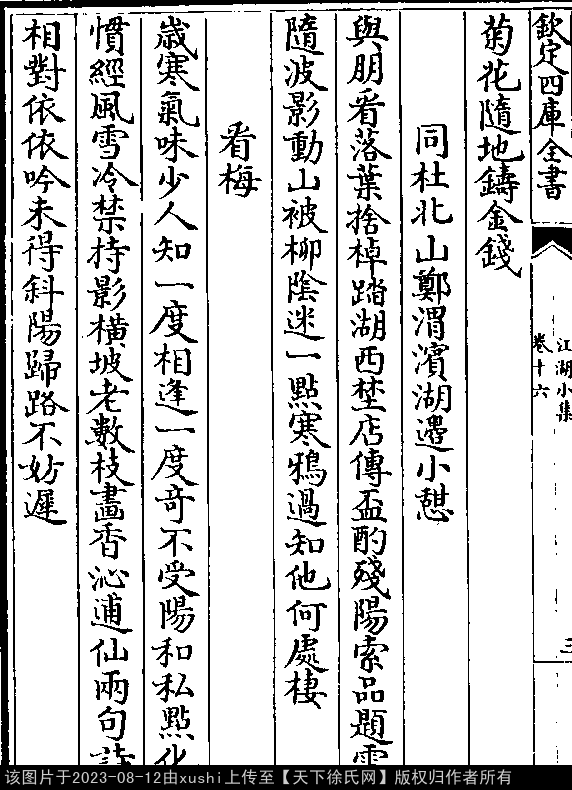 欽定四庫全書
江湖小集
卷十六
三
菊花隨地鑄金錢
同杜北山鄭渭濱湖邊小憩
與朋看落葉捨棹踏湖西埜店傳盃酌殘陽索品題雲
隨波影動山被柳陰迷一點寒鴉過知他何處棲
看梅
歲寒氣味少人知一度相逢一度竒不受陽和私點化
慣經風雪冷禁持影橫坡老數枝畫香沁逋仙兩句詩
相對依依吟未得斜陽歸路不妨遲
该图片于2023-08-12由xushi上传至【天下徐氏网】版权归作者所有